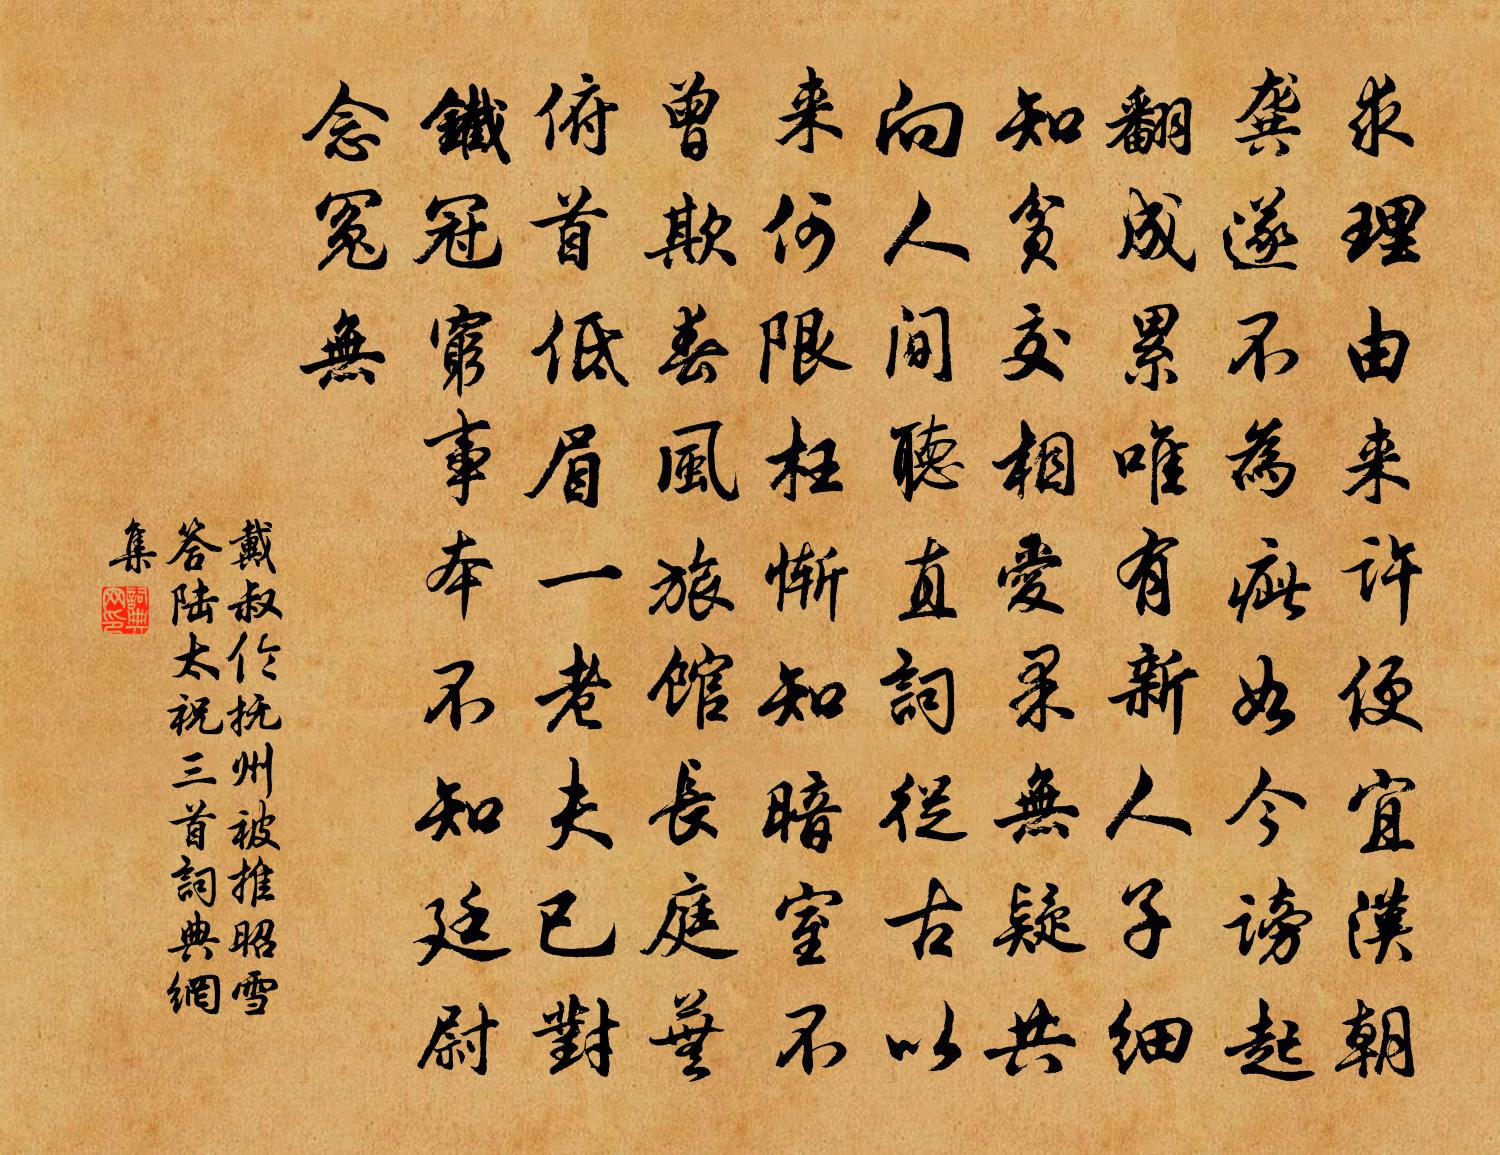 求理由来許便宜漢朝
龔遂不為疵如今謗起
翻成累唯有新人子細
知貧交相愛果無疑共
向人間聽直詞從古以
来何限枉慚知暗室不
曾欺春風旅館長庭蕪
俯首低眉一老夫已對
鐵冠窮事本不知廷尉
念冤無
戴叔伦抚州被推昭雪
答陆太祝三首詞典網
集
詞典网印